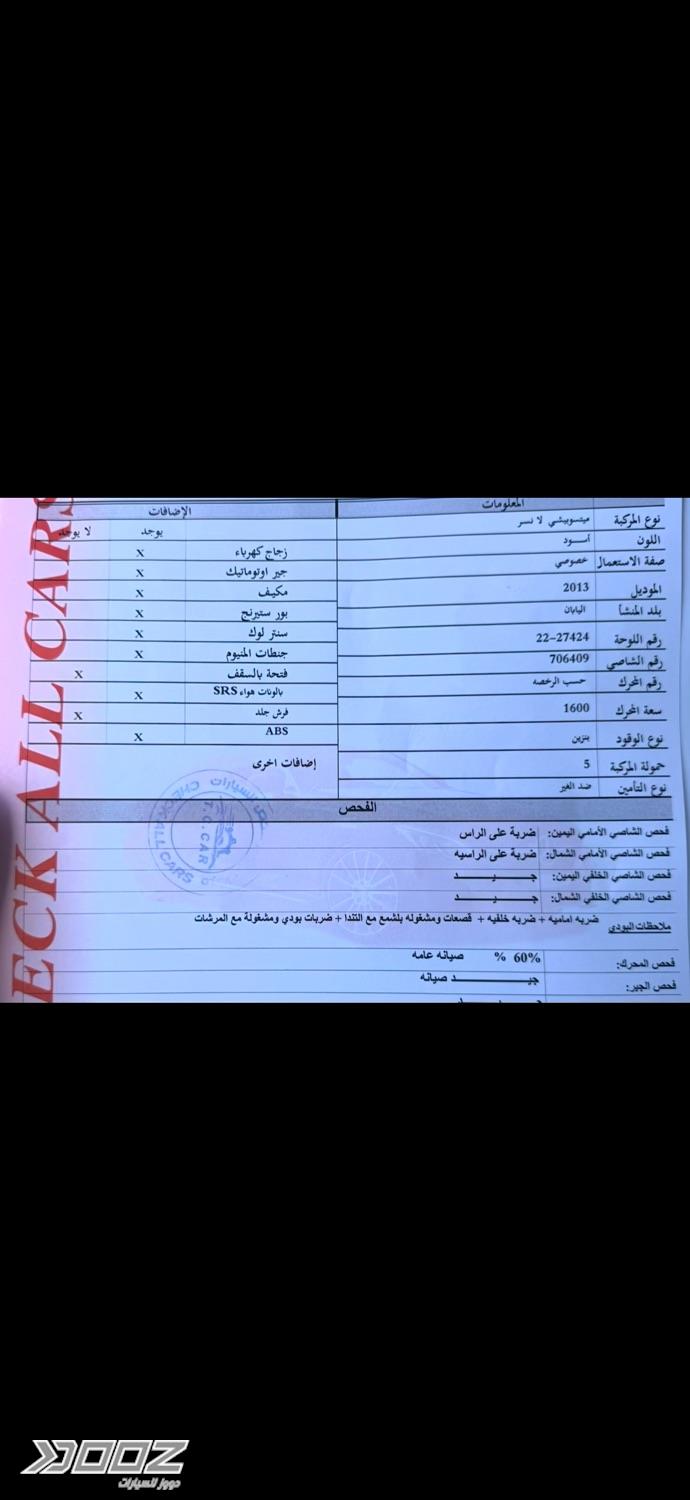 ECK ALL CARS
المعلومات
نوع المركبة ميتسوبيشي لانسر
اللون أسود
صفة الاستعمال خصوصي
الموديل 2013
بلد المنشأ اليابان
رقم اللوحة 22-27424
رقم الشاصي 706409
رقم المحرك حسب الرخصه
سعة المحرك 1600
نوع الوقود بنزين
حمولة المركبة 5
نوع التأمين ضد الغير
الإضافات
يوجد لا يوجد
زجاج كهرباء X
جير اوتوماتيك X
مكيف X
بور ستيرنج X
سنتر لوك X
جنطات المنيوم X
فتحة بالسقف X
بالونات هواء SRS X
فرش جلد X
ABS X
إضافات اخرى
الفحص
فحص الشاصي الأمامي اليمين: ضربة على الراس
فحص الشاصي الأمامي الشمال: ضربة على الراسيه
فحص الشاصي الخلفي اليمين: جيد
فحص الشاصي الخلفي الشمال: جيد
ملاحظات البودي ضربه اماميه + ضربه خلفيه + قصعات ومشغوله بلشمع مع التندا + ضربات بودي ومشغولة مع المرشات
فحص المحرك: 60% % صيانه عامه
فحص الجير: جيد صيانه
T.C.CAR
DOOZ
دووز للسيارات